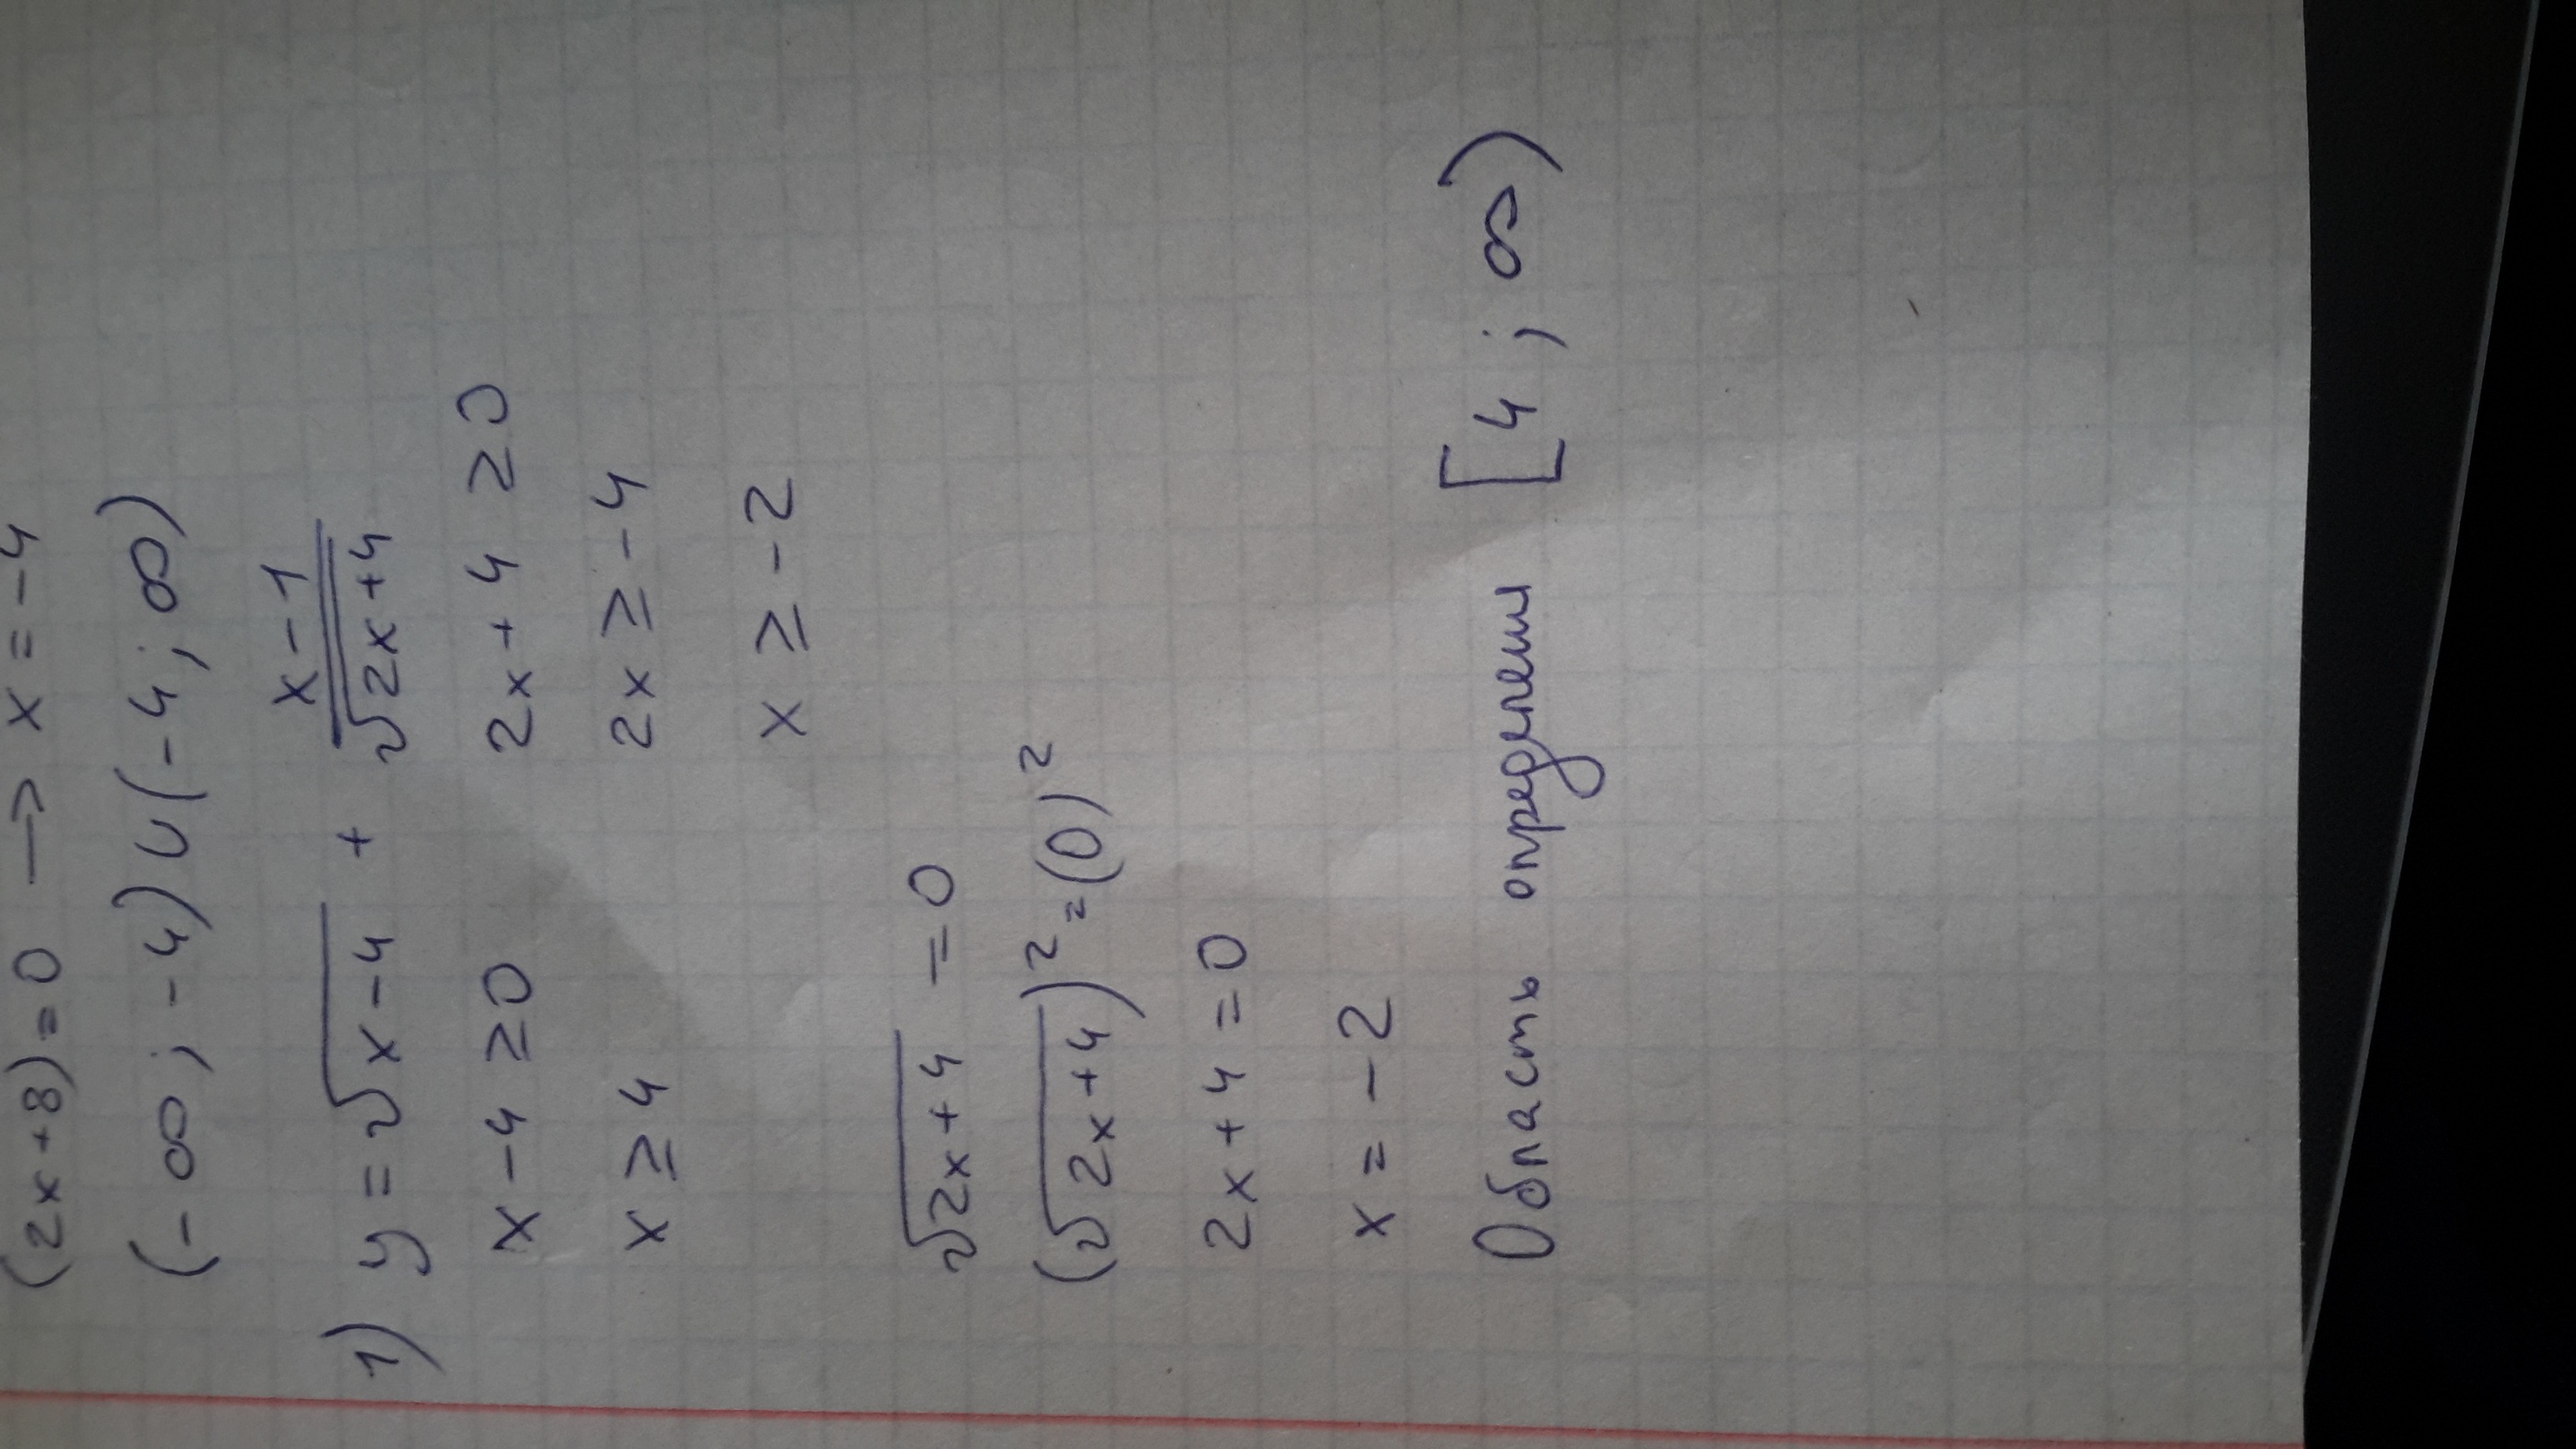 (2x+8)=0 → x=-4
(-∞; -4)∪(-4; ∞)
1) y=√(x-4) + (x-1)/√(2x+4)
x-4 ≥0 2x+4 ≥0
x ≥ 4 2x ≥ -4
x ≥ -2
√(2x+4) =0
(√(2x+4))²=(0)²
2x+4=0
x = -2
Область определения [4; ∞)